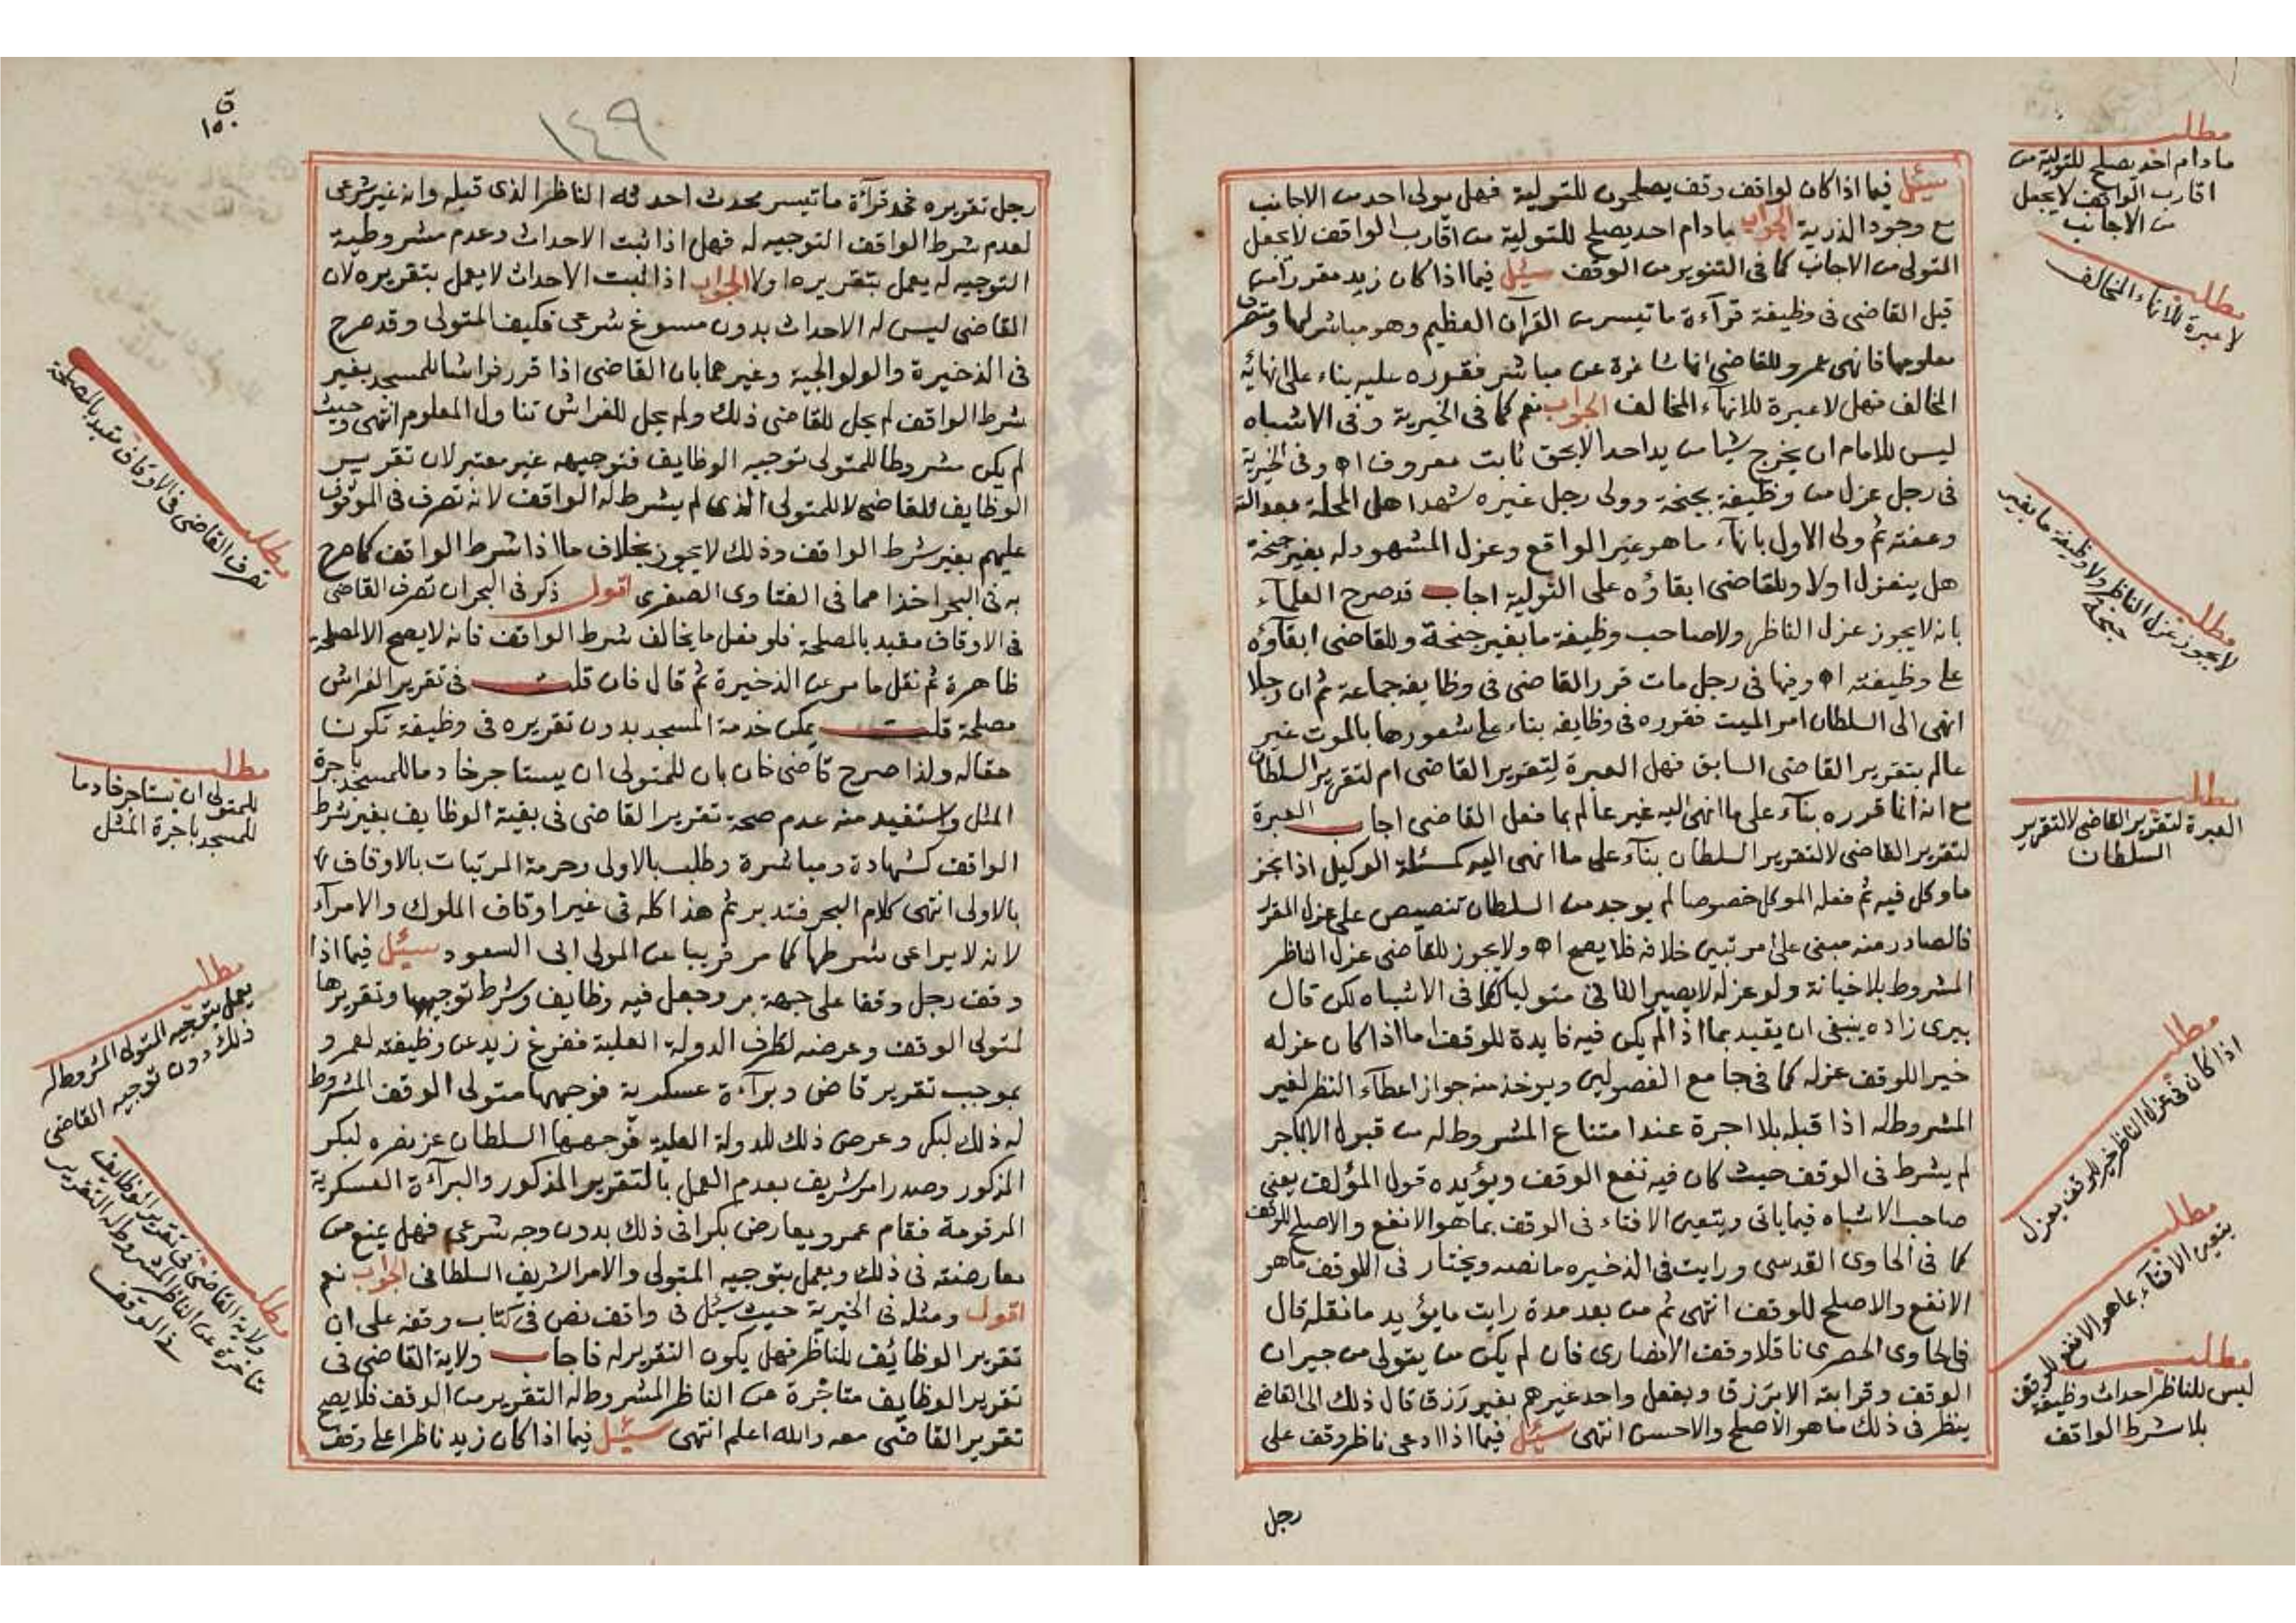 سئل فيما اذا كان لواقف وقف يصلحون للتولية فهل يولى احد من الاجانب
مع وجود الذرية الجواب مادام احد يصلح للتولية من اقارب الواقف لا يجعل
المتولى من الاجانب كما فى التنوير من الوقف سئل فيما اذا كان زيد مقررا من
قبل القاضى فى وظيفة قرآءة ما تيسر من القرآن العظيم وهو مباشر لها ومتصرف
معلومها فانهى عمرو للقاضى انها شاغرة عن مباشر فقرره عليه بناء على انهائه
المخالف فهل لا عبرة للانهآء المخالف الجواب نعم كما فى الخيرية وفى الاشباه
ليس للامام ان يخرج شيا من يد احد الا بحق ثابت معروف اه وفى الخيرية
فى رجل عزل من وظيفة بجنحة وولى رجل غيره شهد اهل المحلة بعدالته
وعفته ثم ولى الاول بانهآء ما هو غير الواقع وعزل المشهود له بغير جنحة
هل ينعزل اولا وللقاضى ابقاؤه على التولية اجاب قد صرح العلمآء
بانه لا يجوز عزل الناظر ولا صاحب وظيفة ما بغير جنحة وللقاضى ابقآؤه
على وظيفته اه وفيها فى رجل مات قرر القاضى فى وظايفه جماعة ثم ان رجلا
انهى الى السلطان امر الميت فقرره فى وظايفه بناء على شعورها بالموت غير
عالم بتقرير القاضى السابق فهل العبرة لتقرير القاضى ام لتقرير السلطان
مع انه انما قرره بنآء على ما انهى اليه غير عالم بما فعل القاضى اجاب العبرة
لتقرير القاضى لا لتقرير السلطان بنآء على ما انهى اليه كمسئلة الوكيل اذا نجز
ما وكل فيه ثم فعله الموكل خصوصا لم يوجد من السلطان تنصيص على عزل المقرر
فالصادر منه مبنى على امر تبين خلافه فلا يصح اه ولا يجوز للقاضى عزل الناظر
المشروط بلا خيانة ولو عزله لا يصير الثانى متوليا كما فى الاشباه لكن قال
بيرى زاده ينبغى ان يقيد بما اذا لم يكن فيه فايدة للوقف اما اذا كان عزله
خيرا للوقف عزله كما فى جامع الفصولين ويوخذ منه جواز اعطآء النظر لغير
المشروط له اذا قبله بلا اجرة عند امتناع المشروط له من قبول الا باجر
لم يشرط فى الوقف حيث كان فيه نفع الوقف ويؤيده قول المؤلف يعنى
صاحب الاشباه فيما ياتى ويتعين الافتاء فى الوقف بما هو الانفع والاصلح للوقف
كما فى الحاوى القدسى ورايت فى الذخيره ما نصه ويختار فى اللوقف ما هو
الانفع والاصلح للوقف انتهى ثم من بعد مدة رايت ما يؤيد ما نقله قال
فى الحاوى الحصرى ناقلا وقف الانصارى فان لم يكن من يتولى من جيران
الوقف وقرابته الا برزق ويفعل واحد غيرهم بغير رزق قال ذلك الى القاضى
ينظر فى ذلك ما هو الاصلح والاحسن انتهى سئل فيما اذا ادعى ناظر وقف على
رجل
مطلب
مادام احد يصلح للتولية من
اقارب الواقف لا يجعل
من الاجانب
مطلب
لا عبرة للانهآء المخالف
مطلب
لا يجوز عزل الناظر ولا وظيفة ما بغير
جنحة
مطلب
العبرة لتقرير القاضى لا لتقرير
السلطان
مطلب
اذا كان فى عزل الناظر خير للوقف يعزل
مطلب
يتعين الافتآء بما هو الانفع للوقف
مطلب
ليس للناظر احداث وظيفة
بلا شرط الواقف
ق
١٥٠
١٤٩
رجل تقريره فى قرآءة ما تيسر محدث احدثه الناظر الذى قبله وانه غير شرعى
لعدم شرط الواقف التوجيه له فهل اذا ثبت الاحداث وعدم مشروطية
التوجيه له يعمل بتقريره اولا الجواب اذا ثبت الاحداث لا يعمل بتقريره لان
القاضى ليس له الاحداث بدون مسوغ شرعى فكيف المتولى وقد صرح
فى الذخيرة والولوالجية وغيرهما بان القاضى اذا قرر فراشا للمسجد بغير
شرط الواقف لم يحل للقاضى ذلك ولم يحل للفراش تناول المعلوم انتهى وحيث
لم يكن مشروطا للمتولى توجيه الوظايف فتوجيهه غير معتبر لان تقرير
الوظايف للقاضى لا للمتولى الذى لم يشرط له الواقف لانه تصرف فى الموقوف
عليهم بغير شرط الواقف وذلك لا يجوز بخلاف ما اذا شرط الواقف كما صرح
به فى البحر اخذا مما فى الفتاوى الصغرى اقول ذكر فى البحر ان تصرف القاضى
فى الاوقاف مقيد بالمصلحة فلو فعل ما يخالف شرط الواقف فانه لا يصح الا لمصلحة
ظاهرة ثم نقل ما مر عن الذخيرة ثم قال فان قلت فى تقرير الفراش
مصلحة قلت يمكن خدمة المسجد بدون تقريره فى وظيفة تكون
حقا له ولذا صرح قاضى خان بان للمتولى ان يستاجر خادما للمسجد باجرة
المثل واستفيد منه عدم صحة تقرير القاضى فى بقية الوظايف بغير شرط
الواقف كشهادة ومباشرة وطلب بالاولى وحرمة المرتبات بالاوقاف
بالاولى انتهى كلام البحر فتدبر ثم هذا كله فى غير اوقاف الملوك والامرآء
لانه لا يراعى شرطها كما مر قريبا عن المولى ابى السعود سئل فيما اذا
وقف رجل وقفا على جهة بر وجعل فيه وظايف وشرط توجيهها وتقريرها
لمتولى الوقف وعرضه لطرف الدولة العلية ففرغ زيد عن وظيفته لعمرو
بموجب تقرير قاضى وبرآءة عسكرية فوجهها متولى الوقف المشروط
له ذلك لبكر وعرض ذلك للدولة العلية فوجهها السلطان عز نصره لبكر
المذكور وصدر امر شريف بعدم العمل بالتقرير المذكور والبرآءة العسكرية
المرقومة فقام عمرو يعارض بكرا فى ذلك بدون وجه شرعى فهل يمنع من
معارضته فى ذلك ويعمل بتوجيه المتولى والامر الشريف السلطانى الجواب نعم
اقول ومثله فى الخيرية حيث سئل فى واقف نص فى كتاب وقفه على ان
تقرير الوظائف للناظر فهل يكون التقرير له فاجاب ولاية القاضى فى
تقرير الوظايف متاخرة عن الناظر المشروط له التقرير من الوقف فلا يصح
تقرير القاضى معه والله اعلم انتهى سئل فيما اذا كان زيد ناظرا على وقف
مطلب
تصرف القاضى فى الاوقاف مقيد بالمصلحة
مطلب
للمتولى ان يستاجر خادما
للمسجد باجرة المثل
مطلب
يعمل بتوجيه المتولى المشروط له
ذلك دون توجيه القاضى
مطلب
ولاية القاضى فى تقرير الوظايف
متاخرة عن الناظر المشروط له التقرير
فى الوقف